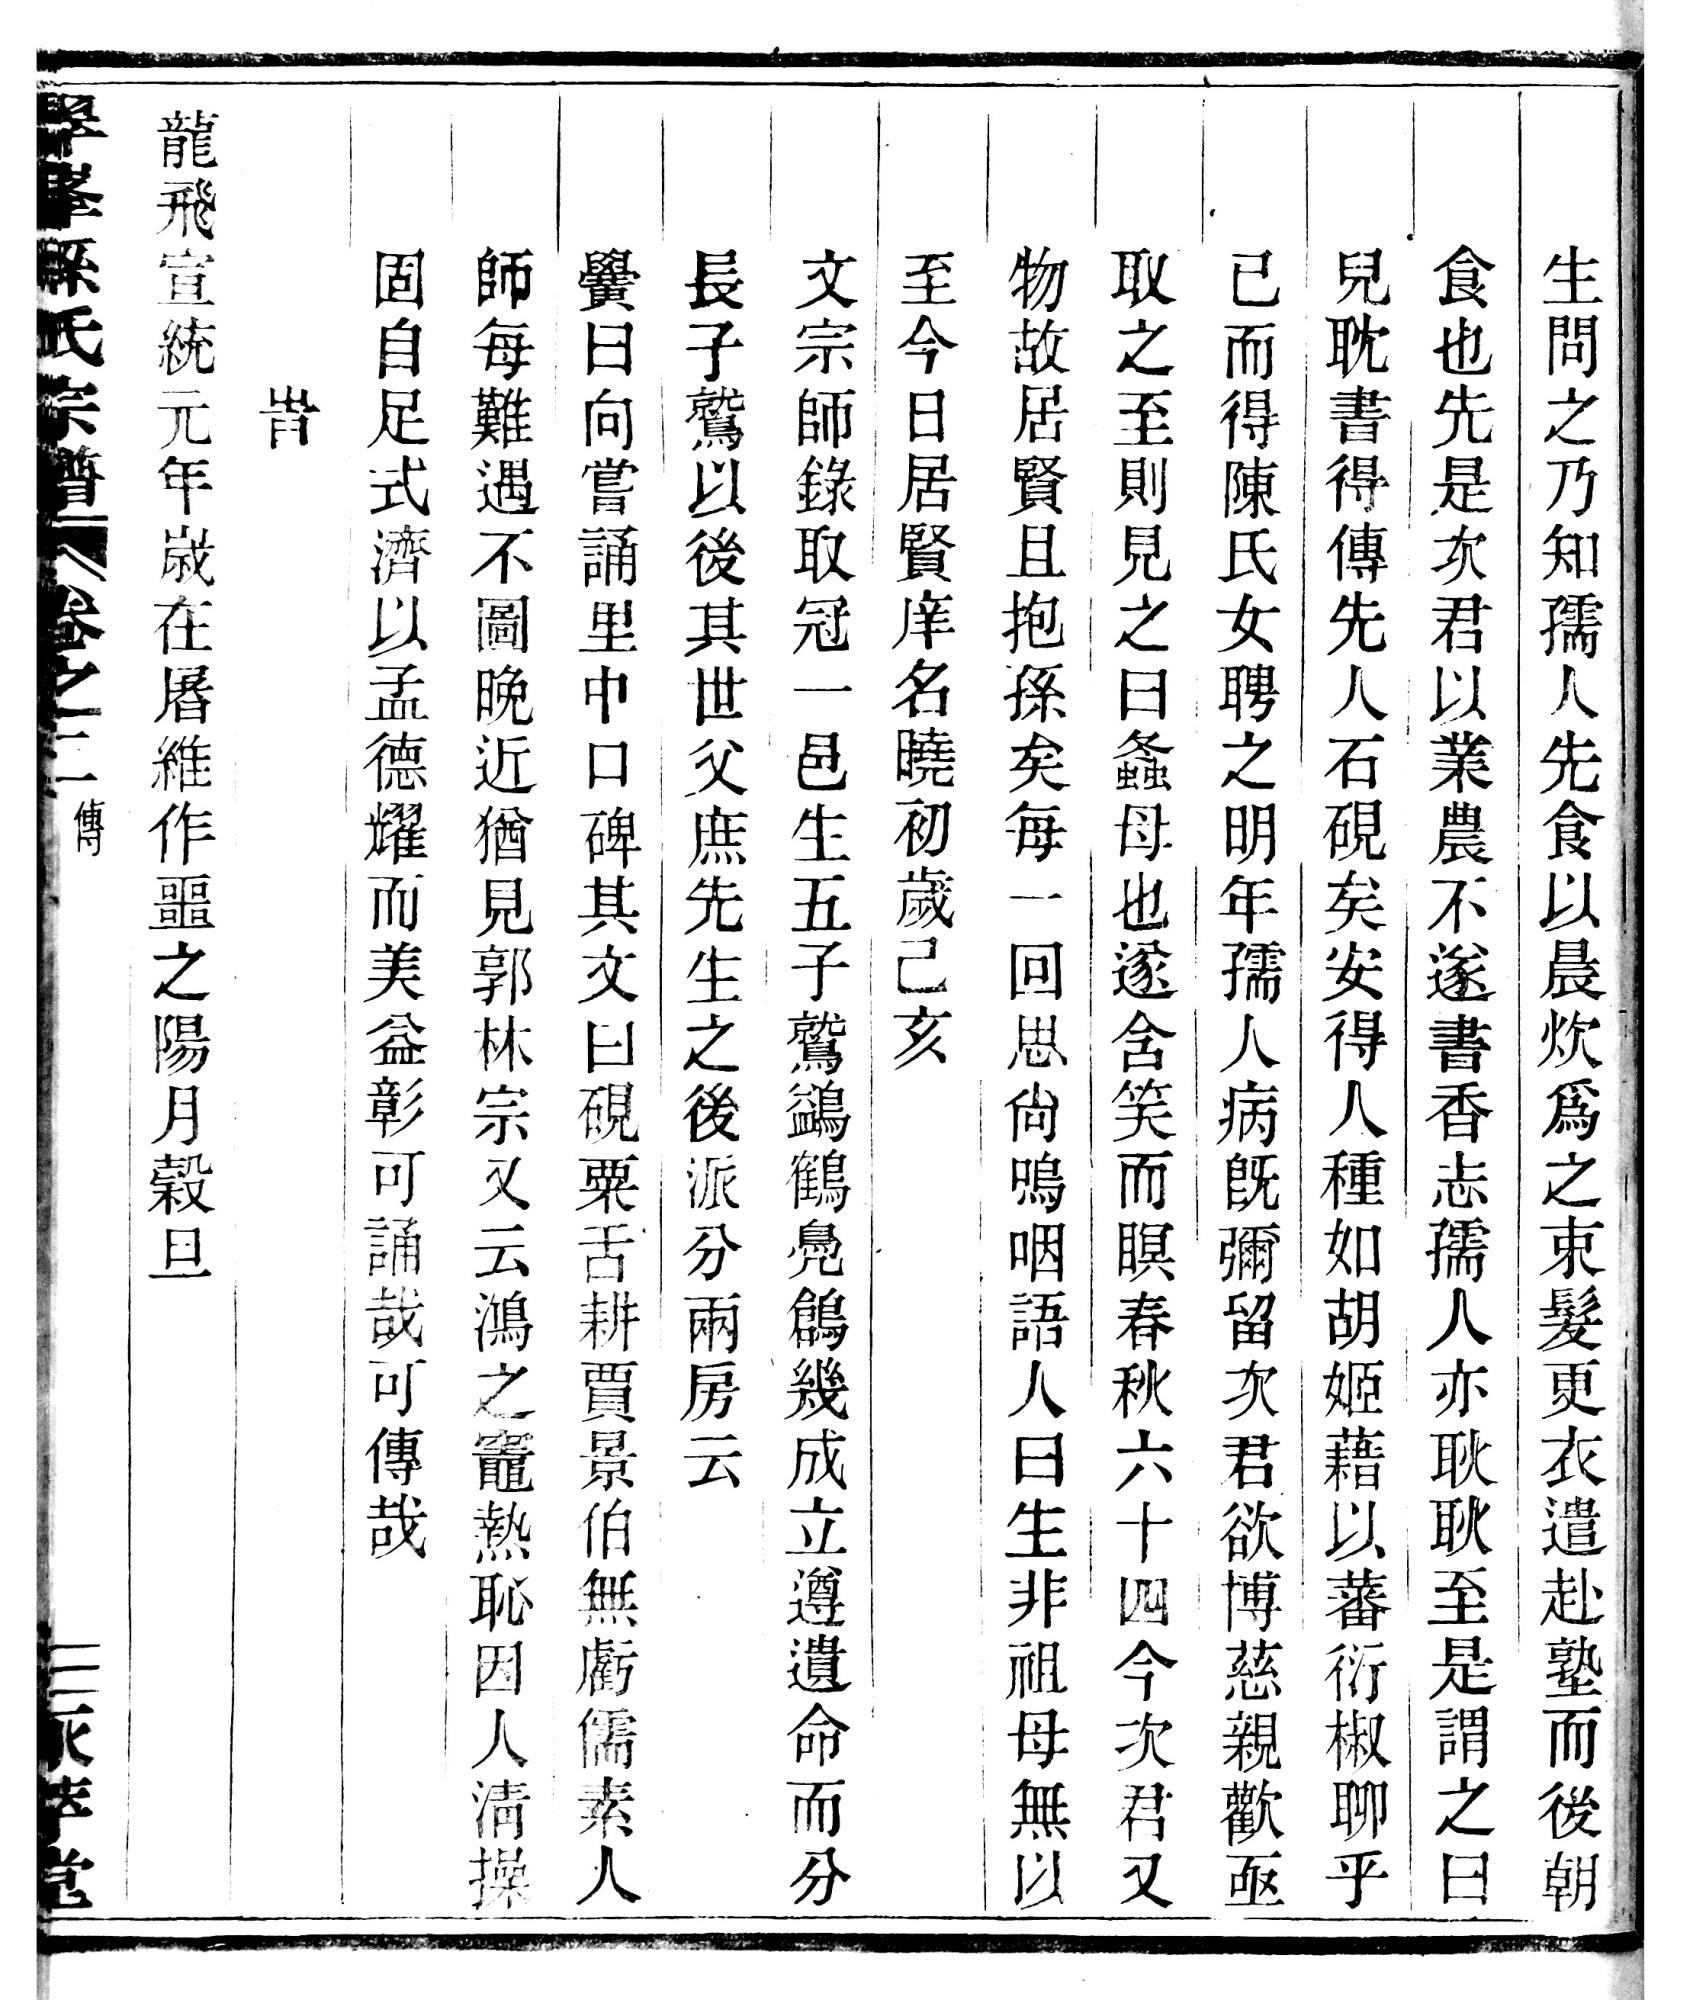 生問之乃知孺人先食以晨炊爲之束髮更衣遣赴塾而後朝
食也先是次君以業農不遂書香志孺人亦耿耿至是謂之曰
兒耽書得傳先人石硯矣安得人種如胡姬藉以蕃衍椒聊乎
已而得陳氏女聘之明年孺人病旣彌留次君欲博慈親歡亟
取之至則見之曰螽母也遂含笑而瞑春秋六十四今次君又
物故居賢且抱孫矣每一回思尙嗚咽語人曰生非祖母無以
至今日居賢庠名曉初歲己亥
文宗師錄取冠一邑生五子鷟鷁鶴鳧鶬幾成立遵遺命而分
長子鷟以後其世父庶先生之後派分兩房云
黌曰向嘗誦里中口碑其文曰硯粟舌耕賈景伯無虧儒素人
師每難遇不圖晚近猶見郭林宗又云鴻之竈熱恥因人淸操
固自足式濟以孟德耀而美益彰可誦哉可傳哉
旹
龍飛宣統元年歲在屠維作噩之陽月穀旦
氏宗譜 卷之二 傳 三 堂